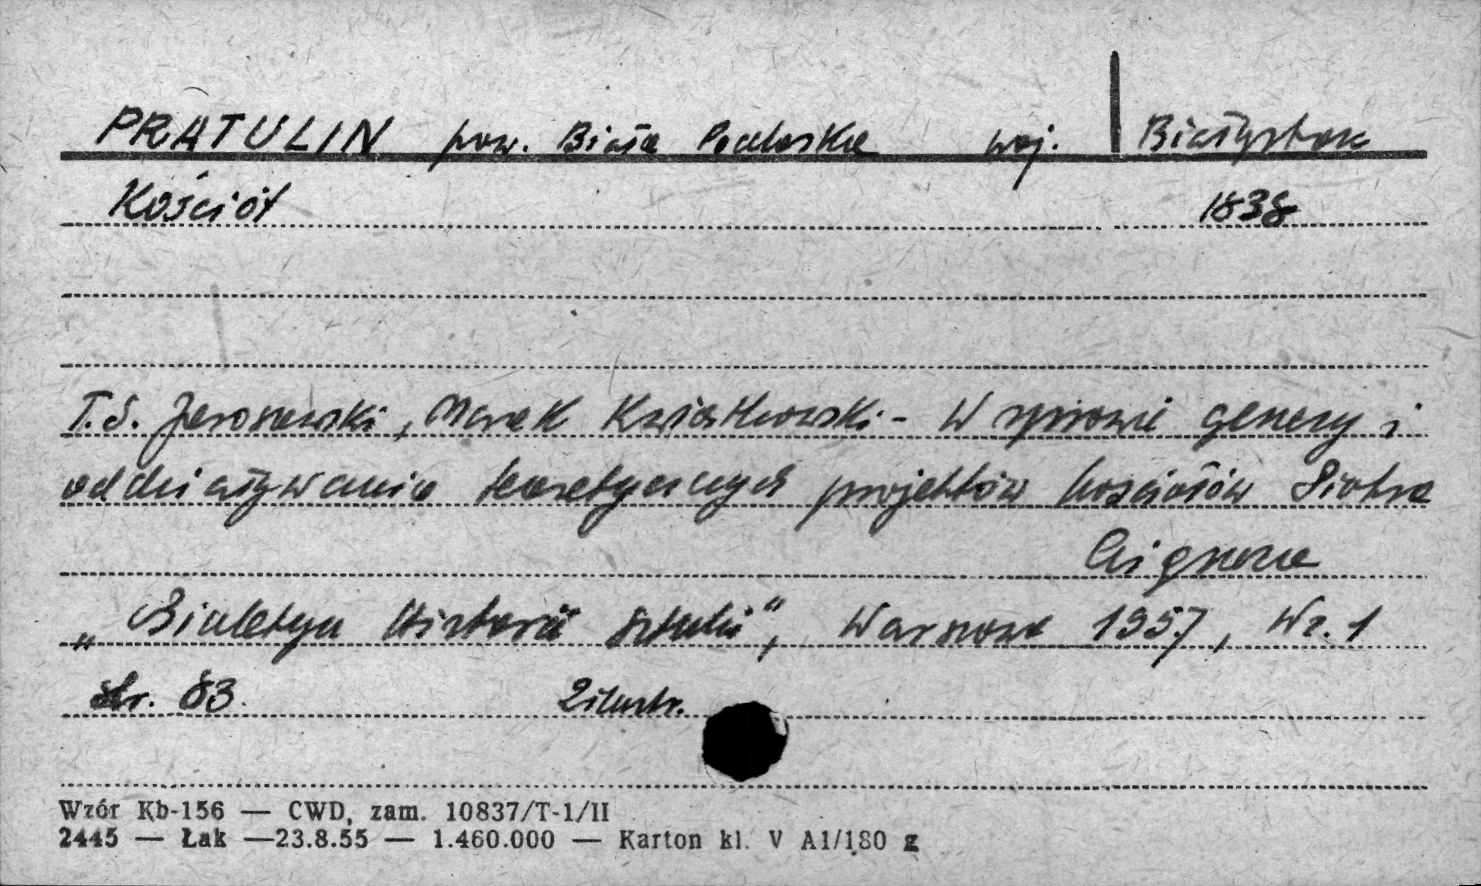 PRATULIN pow. Biała Podlaska woj. Białystok
Kościół 1838
T.S. Jaroszewski, Marek Kwiatkowski - W sprawie genezy i
oddziaływania teoretycznych projektów kościołów Piotra
Aignera
„Biuletyn Historii Sztuki", Warszawa 1957, Nr. 1
str. 83. 2 ilustr.
Wzór Kb-156 — CWD, zam. 10837/T-1/II
2445 — Łak —23.8.55 — 1.460.000 — Karton kl. V A1/180 g